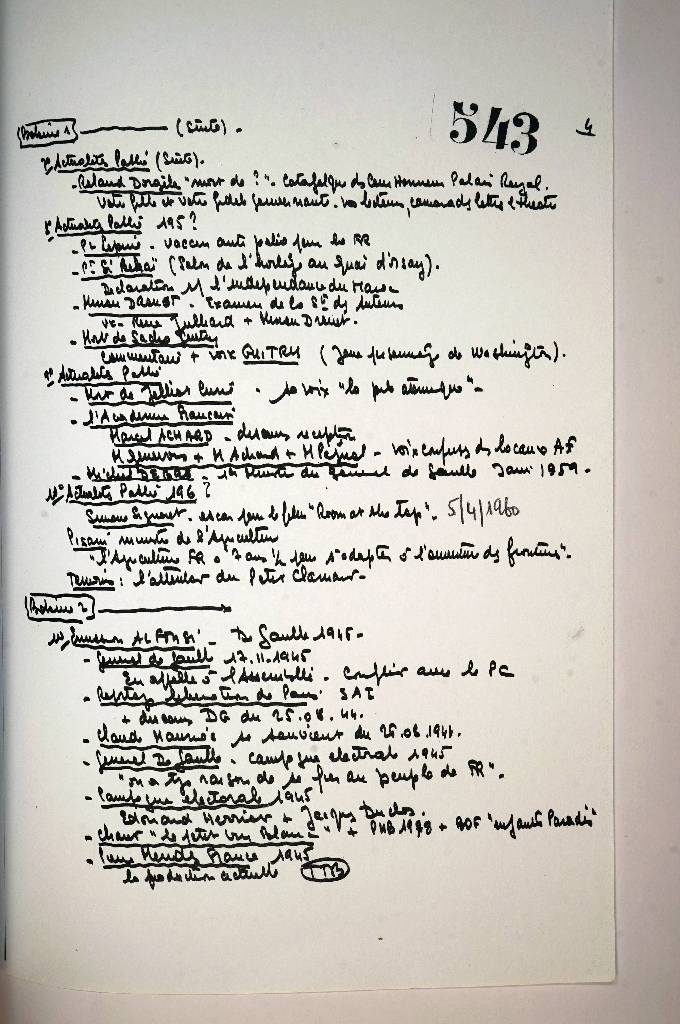 543 4
Bobine 1 (suite).
Actualités Pathé (Suite).
- Roland Dorgelès "mort de ?" - Catafalque ds Cour Honneur Palais Royal.
votre fille et votre fidèle gouvernante. vos lecteurs, camarades lettres & théâtre
Actualités Pathé 195?
- Pr Lépine - vaccin anti polio pour la FR
- Si Bekkaï (Salon de l'horloge au Quai d'Orsay).
Declaration s/ l'indépendance du Maroc
- Minou DROUET - Examen de la Sté des Auteurs
René Julliard + Minou Drouet.
- Mort de Sacha Guitry
Commentaire + voix GUITRY (joue personnage de Washington).
Actualités Pathé
- Mort de Jolliot Curie - sa voix "la atomique" -
- l'Académie Française
Marcel ACHARD - discours reception
M Genevoix + M Achard + M Pagnol - voix confuses ds locaux AF
- Michel DEBRE - 1er Ministre du Général de Gaulle Janv 1959 -
11° Actualités Pathé 196?
Simone Signoret - oscar pour le film "Room at the top". 5/4/1960
Pisani ministre de l'Agriculture
"l'Agriculture FR a 7 ans 1/2 pour s'adapter à l'ouverture des frontières".
Témoin : l'attentat du Petit Clamart -
Bobine 2
Emission ALFONSI - De Gaulle 1945 -
- General de Gaulle 17.11.1945
En appelle à l'Assemblée - Conflit avec le PC
- Reportage libération de Paris SAI
+ discours DG du 25.08.44.
- Claude Mauriac se souvient du 25.08.1944.
- General De Gaulle - campagne electorale 1945
"on a tjs raison de se fier au peuple de FR".
- Campagne electorale 1945
Edouard Herriot + Jacques Duclos.
- Chant "le petit vin blanc" + PHB 1978 + BOF "enfants Paradis"
- Pierre Mendès France 1945
la production actuelle TTB